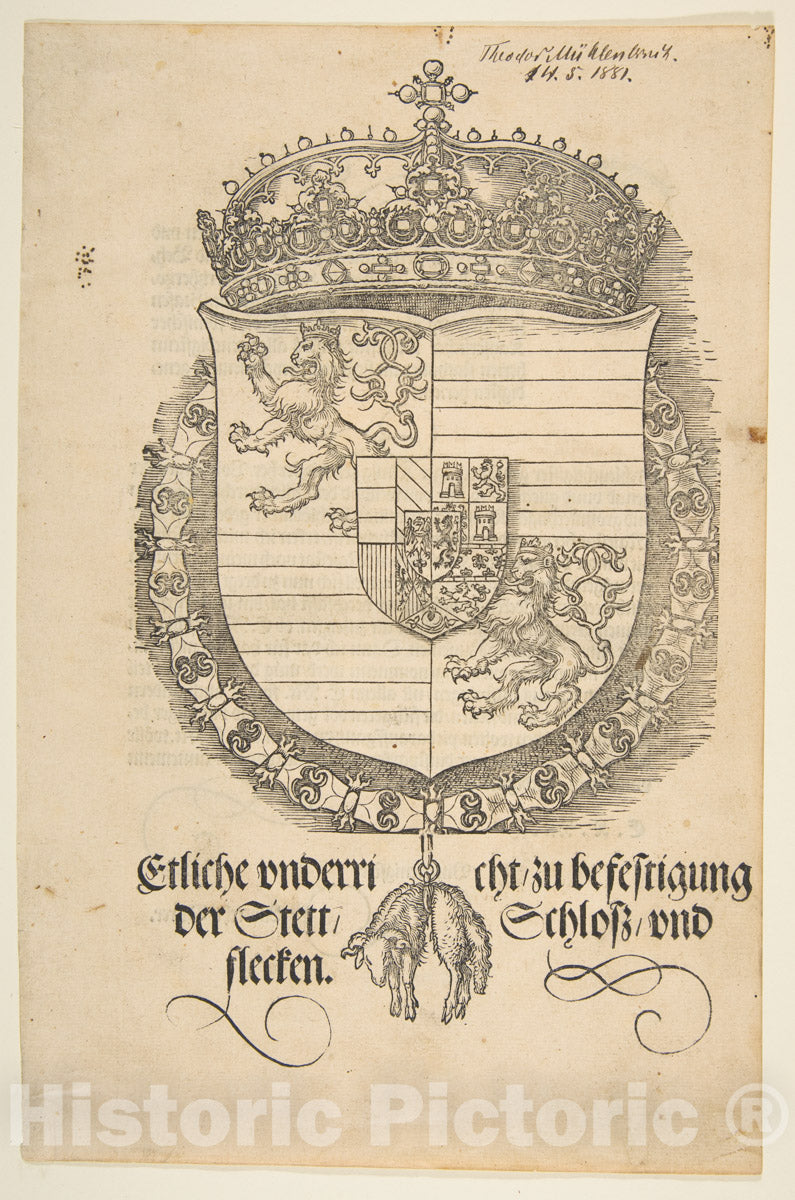 Theodor Mühlenbruch.
14. 5. 1881.
Etliche vnderricht/zu befestigung
der Stett/ Schloß/ vnd
flecken.
Historic Pictoric ®